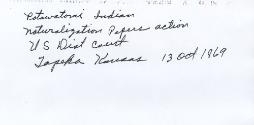 Potawatomi Indian
Naturalization Papers action
U S Dist Court
Topeka Kansas 13 Oct 1869